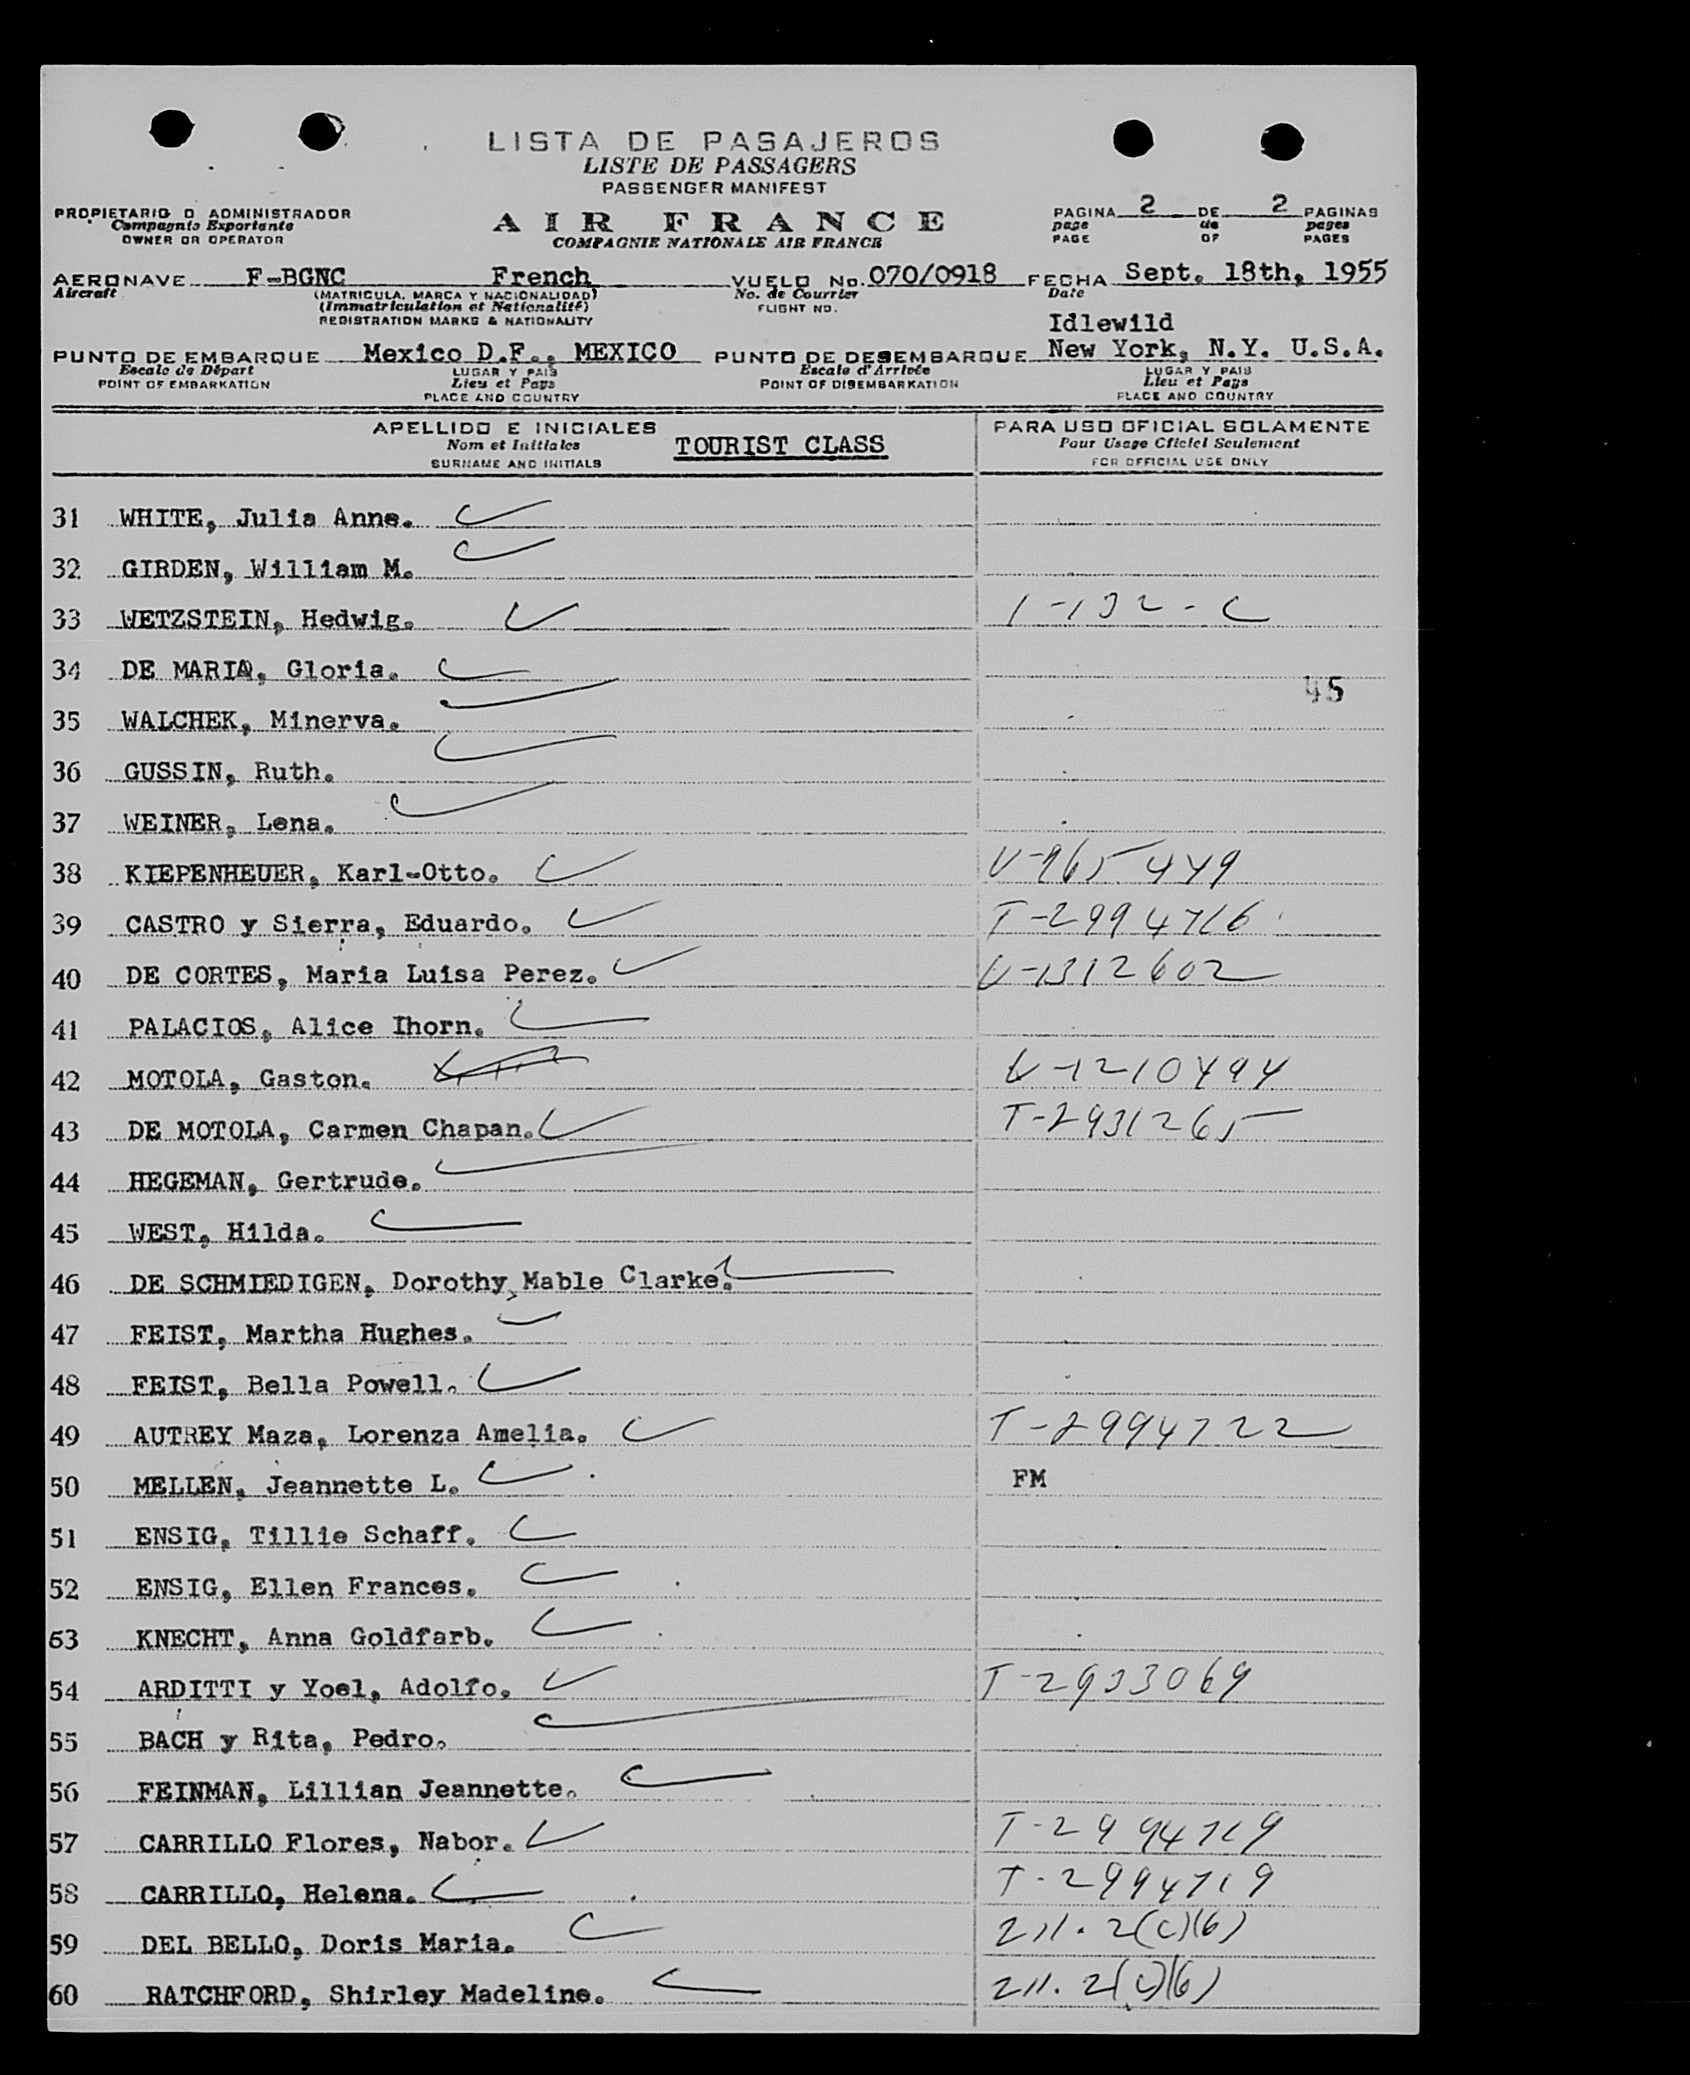 LISTA DE PASAJEROS
LISTE DE PASSAGERS
PASSENGER MANIFEST
PROPIETARIO O ADMINISTRADOR
Compagnie Exportante
OWNER OR OPERATOR
AIR FRANCE
COMPAGNIE NATIONALE AIR FRANCE
PAGINA 2 DE 2 PAGINAS
page de pages
PAGE OF PAGES
AERONAVE F-BGNC French VUELO No. 070/0918 FECHA Sept. 18th, 1955
Aircraft (MATRICULA, MARCA Y NACIONALIDAD) No. de Courrier Date
(Immatriculation et Nationalité) FLIGHT NO.
REGISTRATION MARKS & NATIONALITY
Idlewild
PUNTO DE EMBARQUE Mexico D.F., MEXICO PUNTO DE DESEMBARQUE New York, N.Y. U.S.A.
Escale de Départ LUGAR Y PAIS Escale d'Arrivée LUGAR Y PAIS
POINT OF EMBARKATION Lieu et Pays POINT OF DISEMBARKATION Lieu et Pays
PLACE AND COUNTRY PLACE AND COUNTRY
APELLIDO E INICIALES PARA USO OFICIAL SOLAMENTE
Nom et Initiales TOURIST CLASS Pour Usage Officiel Seulement
SURNAME AND INITIALS FOR OFFICIAL USE ONLY
31 WHITE, Julia Anne.
32 GIRDEN, William M.
33 WETZSTEIN, Hedwig. 1-132-C
34 DE MARIA, Gloria.
45
35 WALCHEK, Minerva.
36 GUSSIN, Ruth.
37 WEINER, Lena.
38 KIEPENHEUER, Karl-Otto. V-965449
39 CASTRO y Sierra, Eduardo. T-2994716
40 DE CORTES, Maria Luisa Perez. V-1312602
41 PALACIOS, Alice Ihorn.
42 MOTOLA, Gaston. V-1210494
43 DE MOTOLA, Carmen Chapan. T-2931265
44 HEGEMAN, Gertrude.
45 WEST, Hilda.
46 DE SCHMIEDIGEN, Dorothy Mable Clarke.
47 FEIST, Martha Hughes.
48 FEIST, Bella Powell.
49 AUTREY Maza, Lorenza Amelia. T-2994722
50 MELLEN, Jeannette L. FM
51 ENSIG, Tillie Schaff.
52 ENSIG, Ellen Frances.
63 KNECHT, Anna Goldfarb.
54 ARDITTI y Yoel, Adolfo. T-2933069
55 BACH y Rita, Pedro.
56 FEINMAN, Lillian Jeannette.
57 CARRILLO Flores, Nabor. T-2994719
58 CARRILLO, Helena. T-2994719
59 DEL BELLO, Doris Maria. 211.2(c)(6)
60 RATCHFORD, Shirley Madeline. 211.2(c)(6)